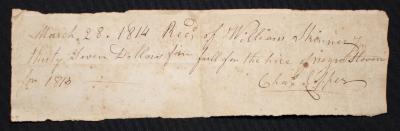 March 28. 1814 Recd of William Skinner
thirty Seven Dollars in full for the hire negro
for 1813
Chas